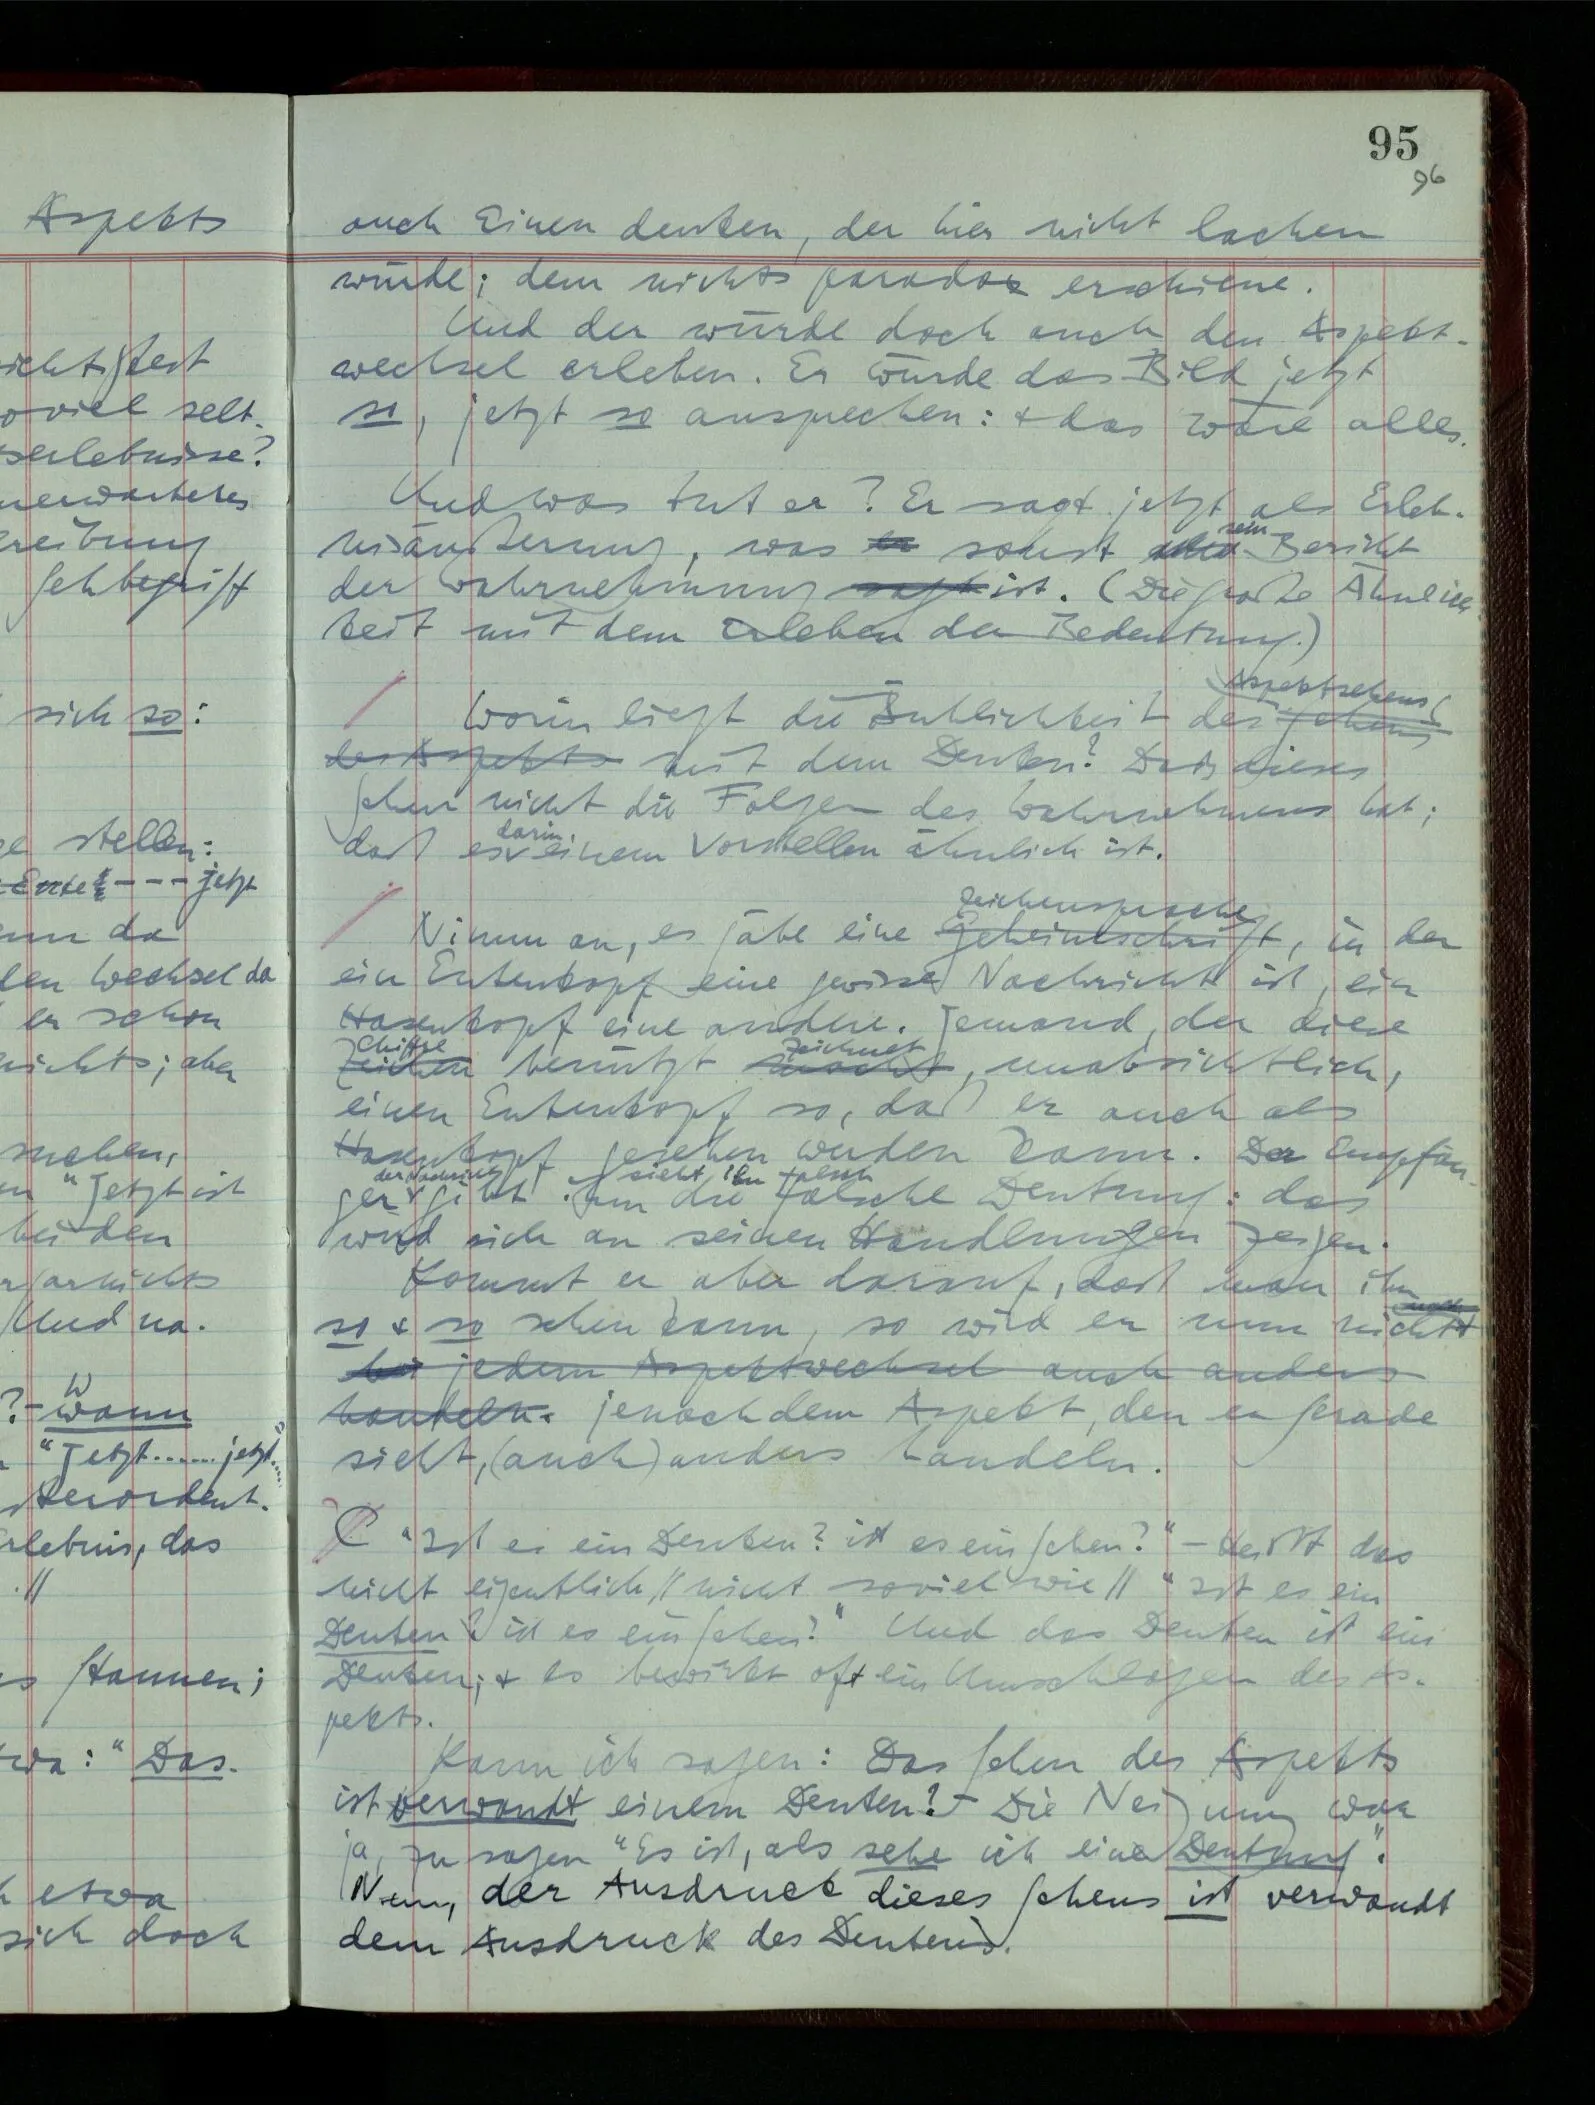 95
96
Aspekts
icht, fest
soviel selt-
serlebnisse?
nerwartetes
reibung
Sehbegriff
sich so:
ge stellen:
Ente - - - jetzt
enn da
den Wechsel da
er schon
nichts; aber
suchen,
en "Jetzt ist
beiden
gar nichts
Und na-
? - wann
"Jetzt...... jetzt....."
sserordent-
rlebnis, das
. //
es Staunen;
twa: "Das-
h etwa
sich doch
auch Einen denken, der hier nicht lachen
würde; dem nichts paradox erschiene.
Und der würde doch auch den Aspekt-
wechsel erleben. Er würde das Bild jetzt
so, jetzt so ansprechen: + das wäre alles.
Und was tut er? Er sagt jetzt als Erleb-
nisäußerung, was er sonst sein Bericht
der Wahrnehmung sagt ist. (Die große Ähnlich-
keit mit dem Erleben der Bedeutung.)
Worin liegt die Ähnlichkeit des Sehens Aspektsehens
des Aspekts mit dem Denken? Daß dieses
Sehen nicht die Folgen des Wahrnehmens hat;
daß es darin einem Vorstellen ähnlich ist.
Nimm an, es gäbe eine Geheimschrift Zeichensprache, in der
ein Entenkopf eine gewisse Nachricht ist, ein
Hasenkopf eine andere. Jemand, der diese
Zeichen Chiffre benützt macht zeichnet, unabsichtlich,
einen Entenkopf so, daß er auch als
Hasenkopf gesehen werden kann. Der Empfän-
ger der Nachricht gibt ihm die falsche Deutung sieht ihn falsch: das
wird sich an seinen Handlungen zeigen.
Kommt er aber darauf, daß man ihn
so + so sehen kann, so wird er nun nicht
bei jedem Aspektwechsel auch anders
handeln. je nach dem Aspekt, den er gerade
sieht, (auch) anders handeln.
C "Ist es ein Denken? ist es ein Sehen?" – Heißt das
nicht eigentlich // nicht soviel wie // "Ist es ein
Deuten? ist es ein Sehen?" Und das Deuten ist ein
Denken; + es bewirkt oft ein Umschlagen des As-
pekts.
Kann ich sagen: Das Sehen des Aspekts
ist verwandt einem Deuten? – Die Neigung war
ja, zu sagen "Es ist, als sehe ich eine Deutung".
Nun, der Ausdruck dieses Sehens ist verwandt
dem Ausdruck des Deutens.